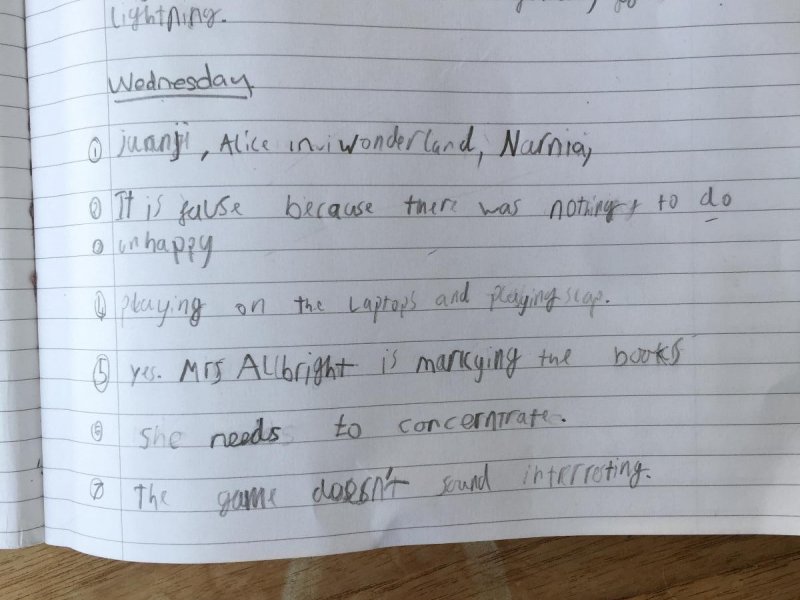 lightning.
Wednesday
① juanji, Alice in wonderland, Narnia,
② It is fause because there was nothing to do
unhappy
④ playing on the laptops and playing slap.
⑤ yes. Mrs Allbright is markying the books
⑥ She needs to concerntrate.
⑦ The game doesn't sound interresting.